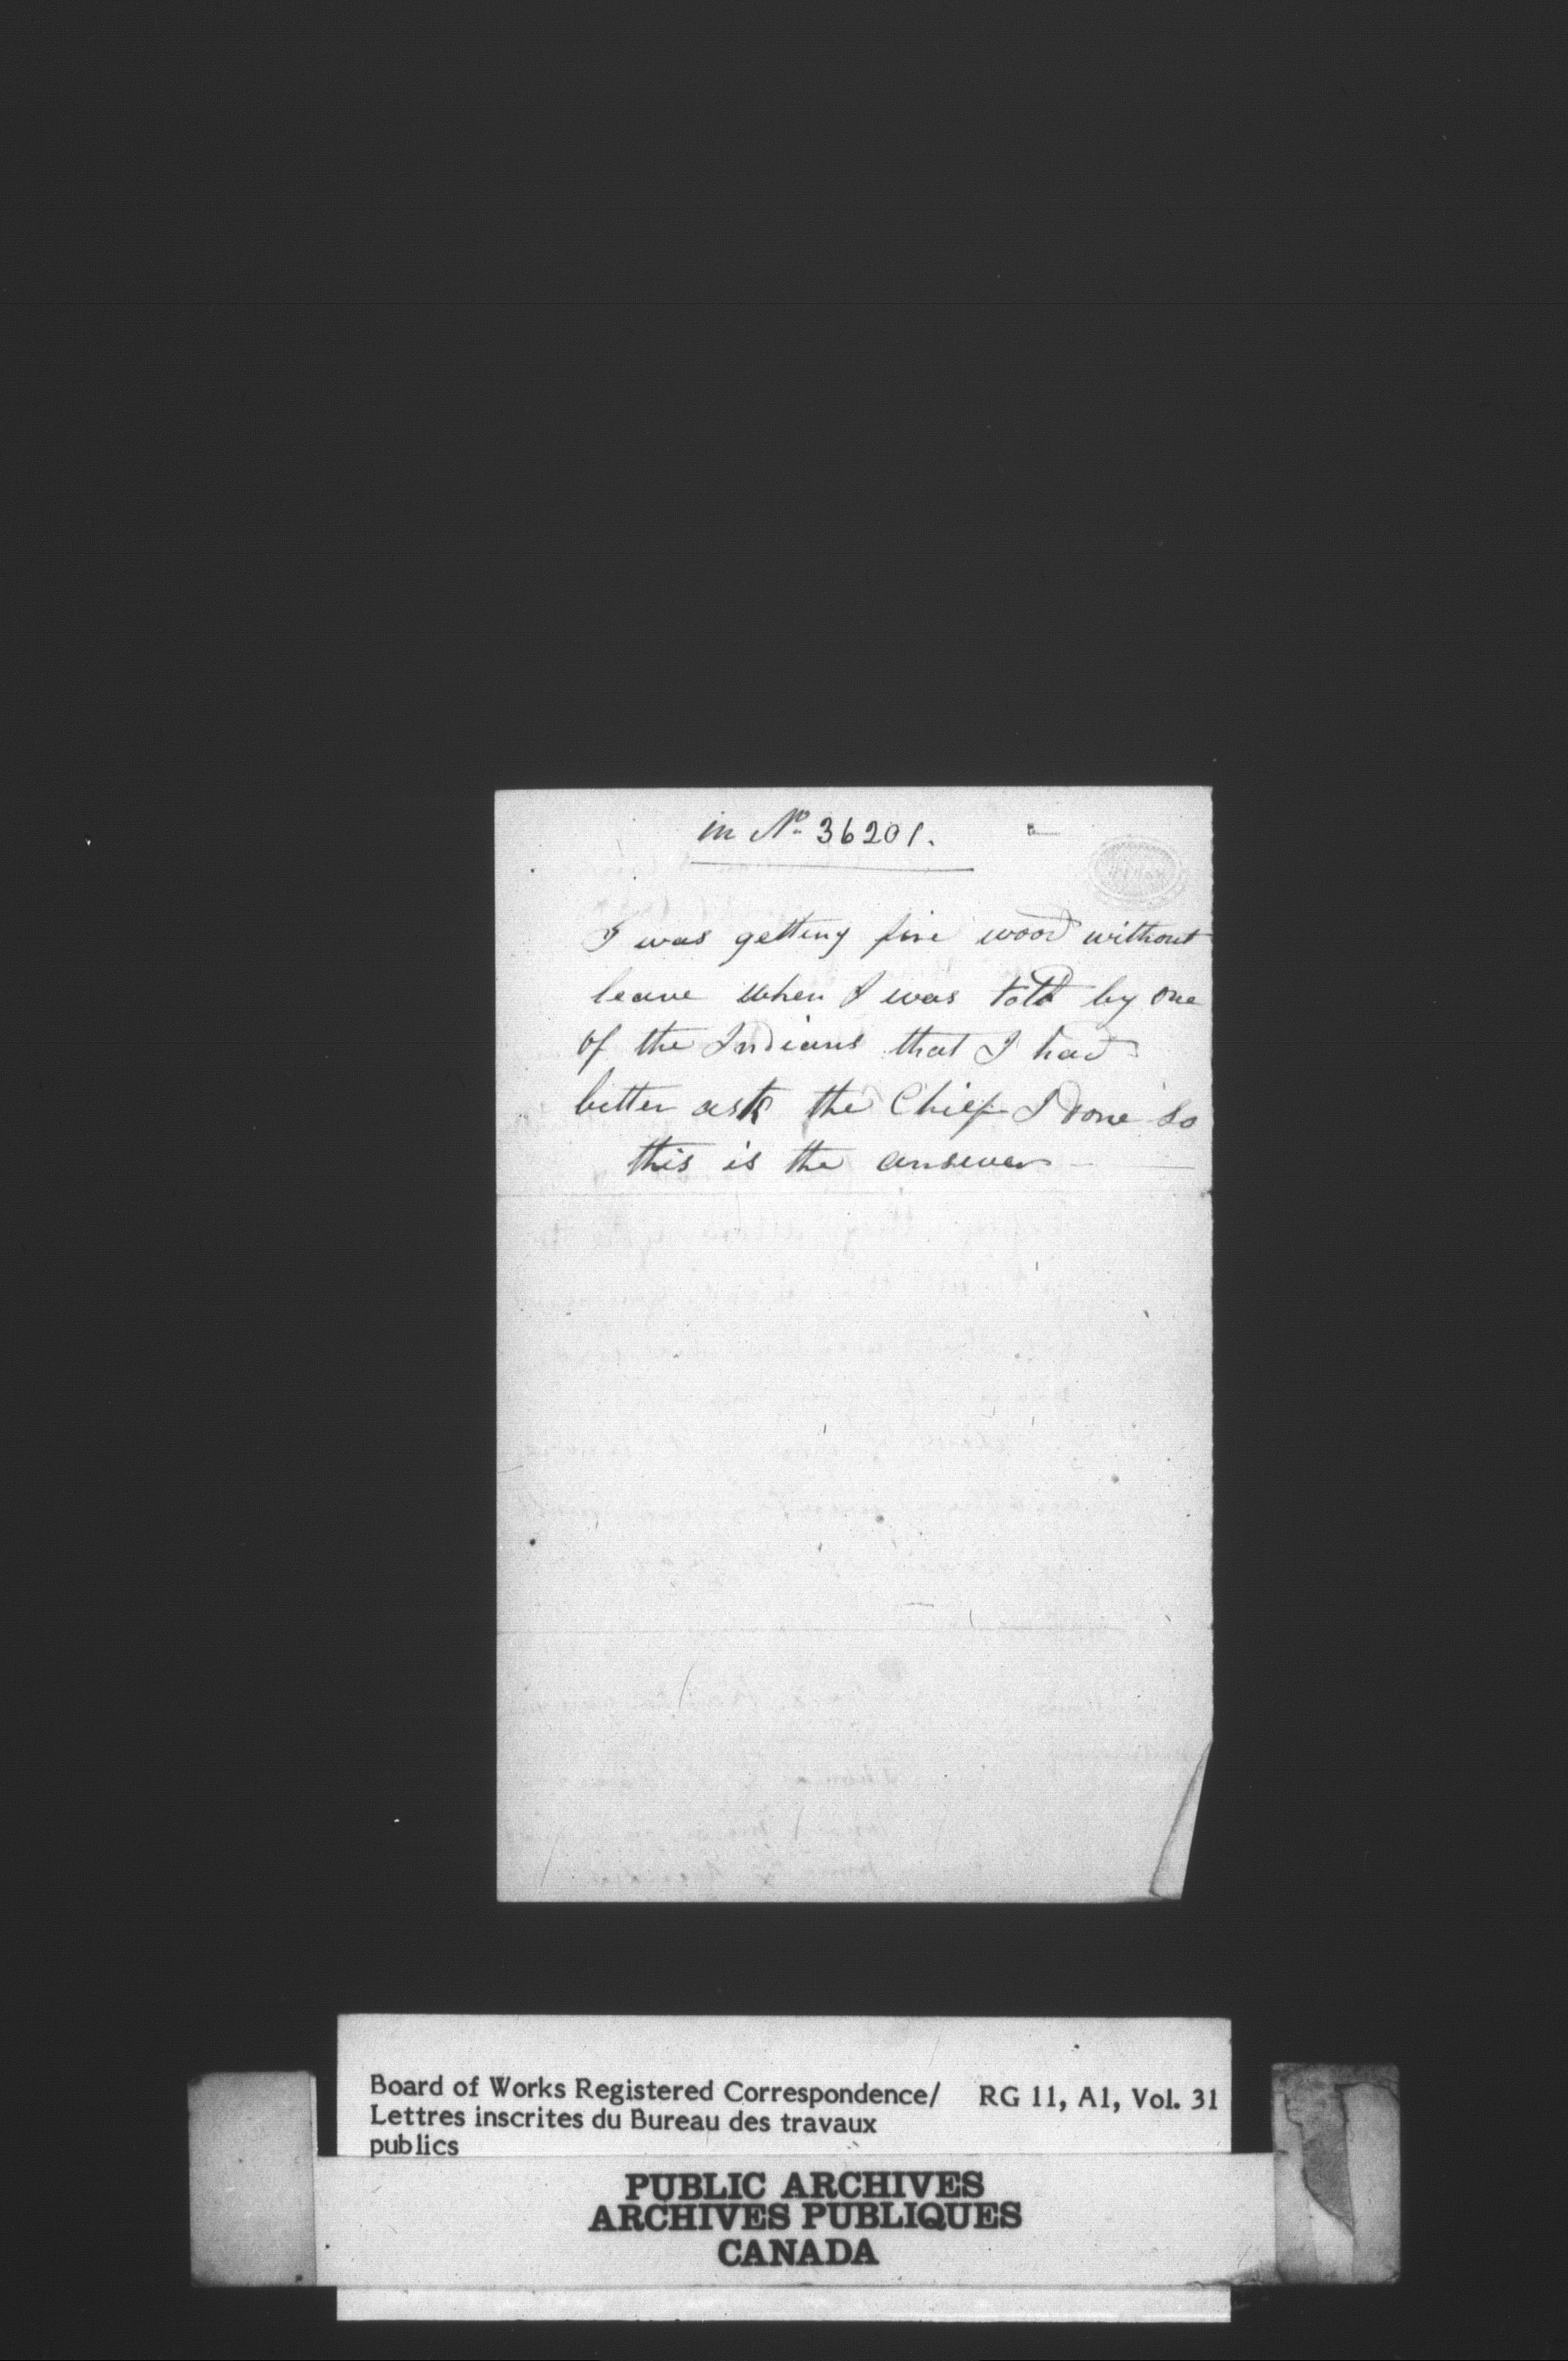 in No 36201.
I was getting fire wood without
leave when I was told by one
of the Indians that I had
better ask the Chief I done so
this is the answer
Board of Works Registered Correspondence/ RG 11, A1, Vol. 31
Lettres inscrites du Bureau des travaux
publics
PUBLIC ARCHIVES
ARCHIVES PUBLIQUES
CANADA